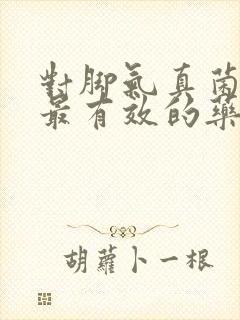 對腳氣真菌
最有效的藥
胡蘿卜一根